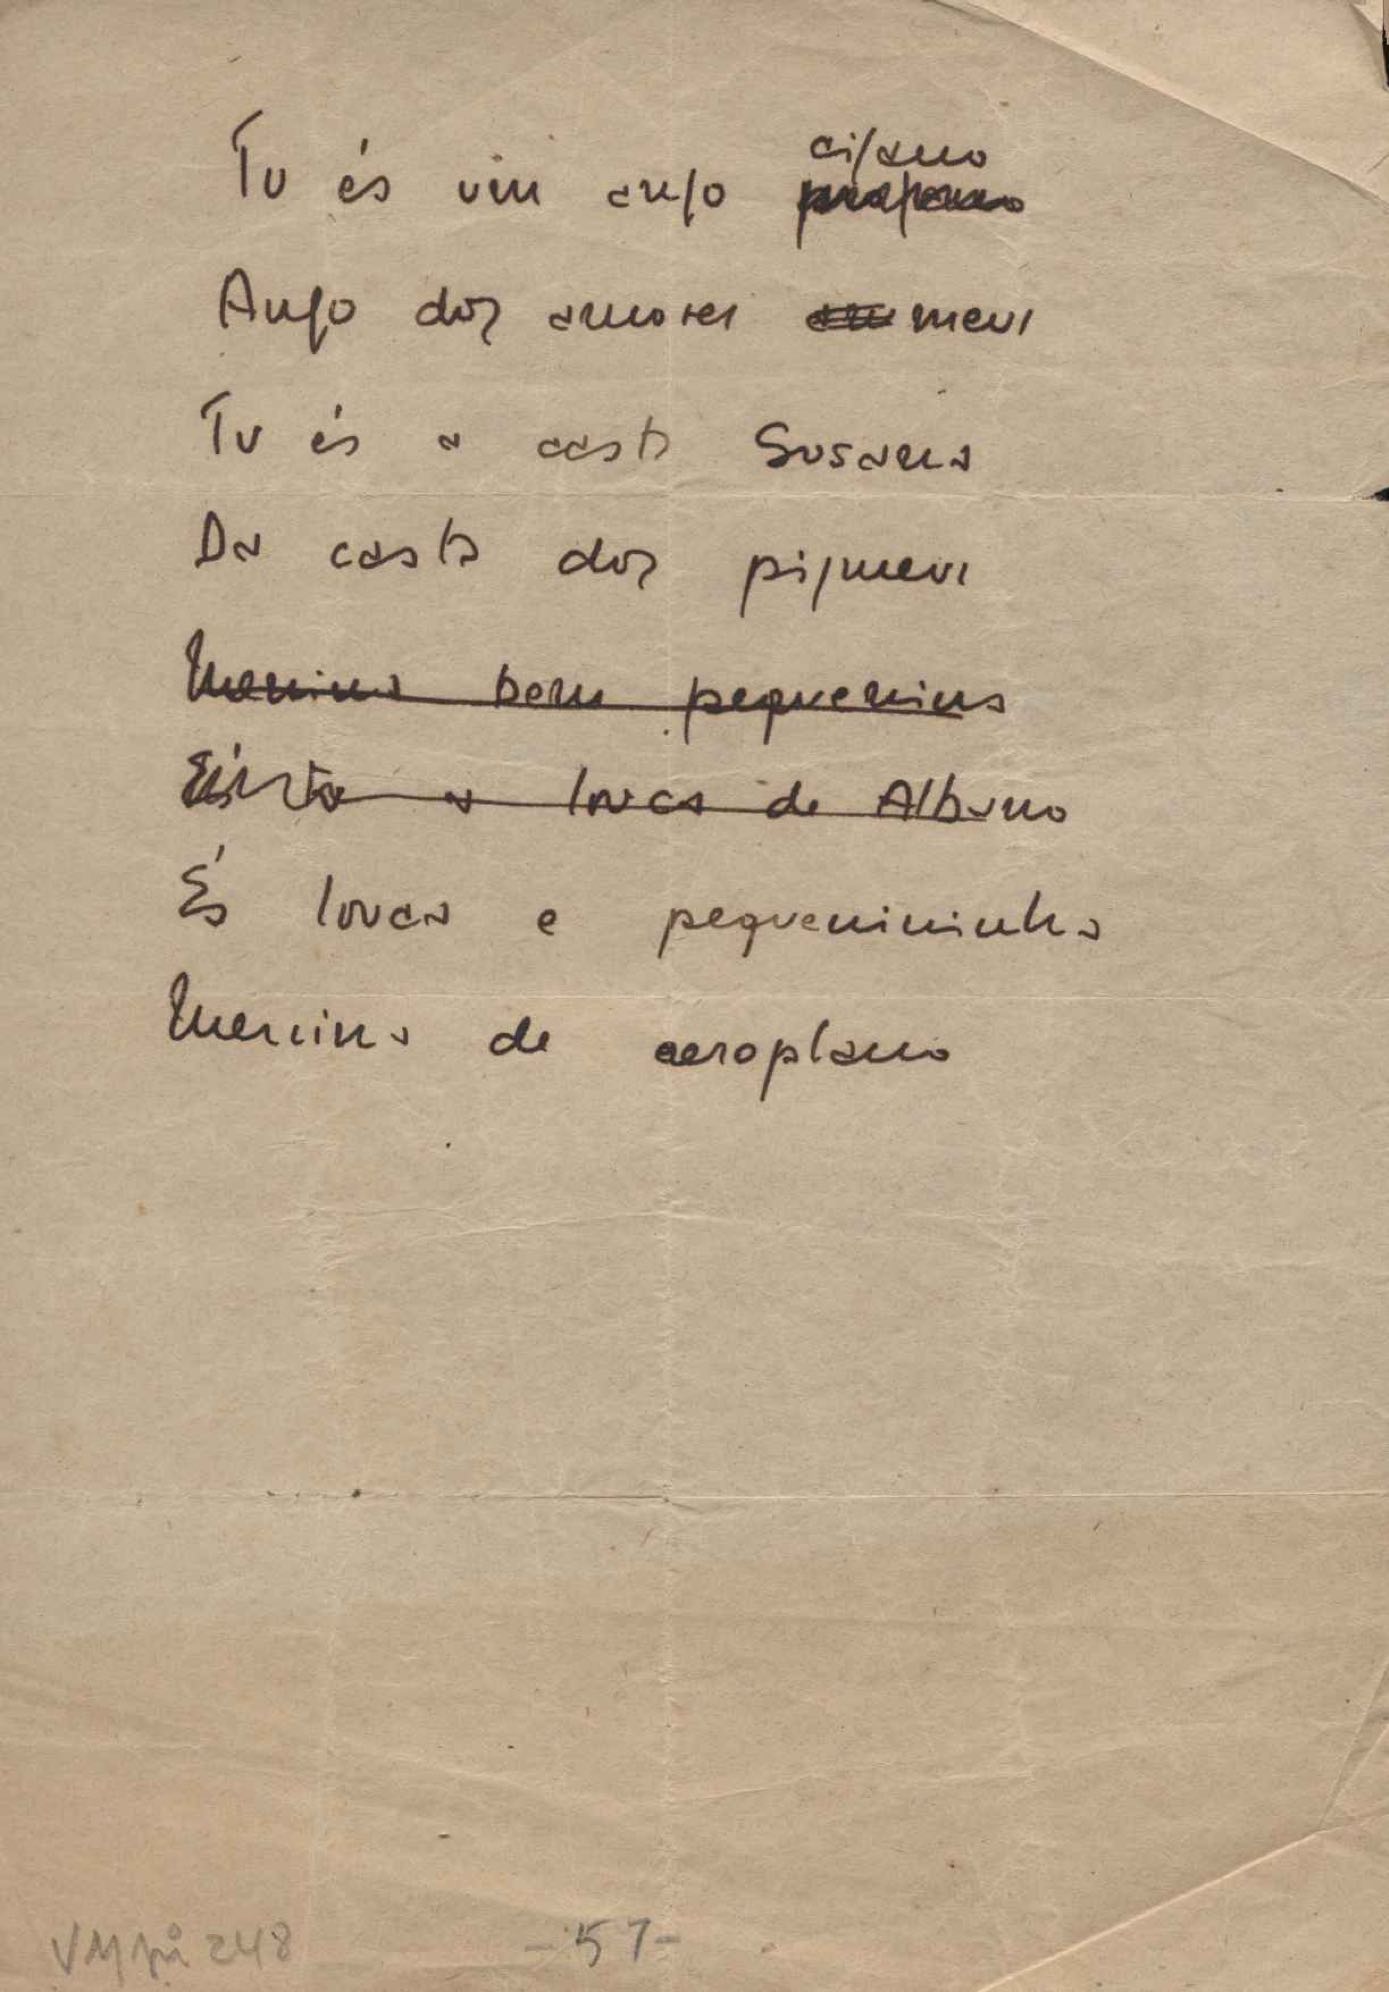 Tu és um anjo cigano
Anjo dos amores meus
Tu és a casta Susana
Da casta dos pigmeus
Menina bem pequenina
a louca de Albano
És louca e pequenininha
Menina de aeroplano
248 -57-